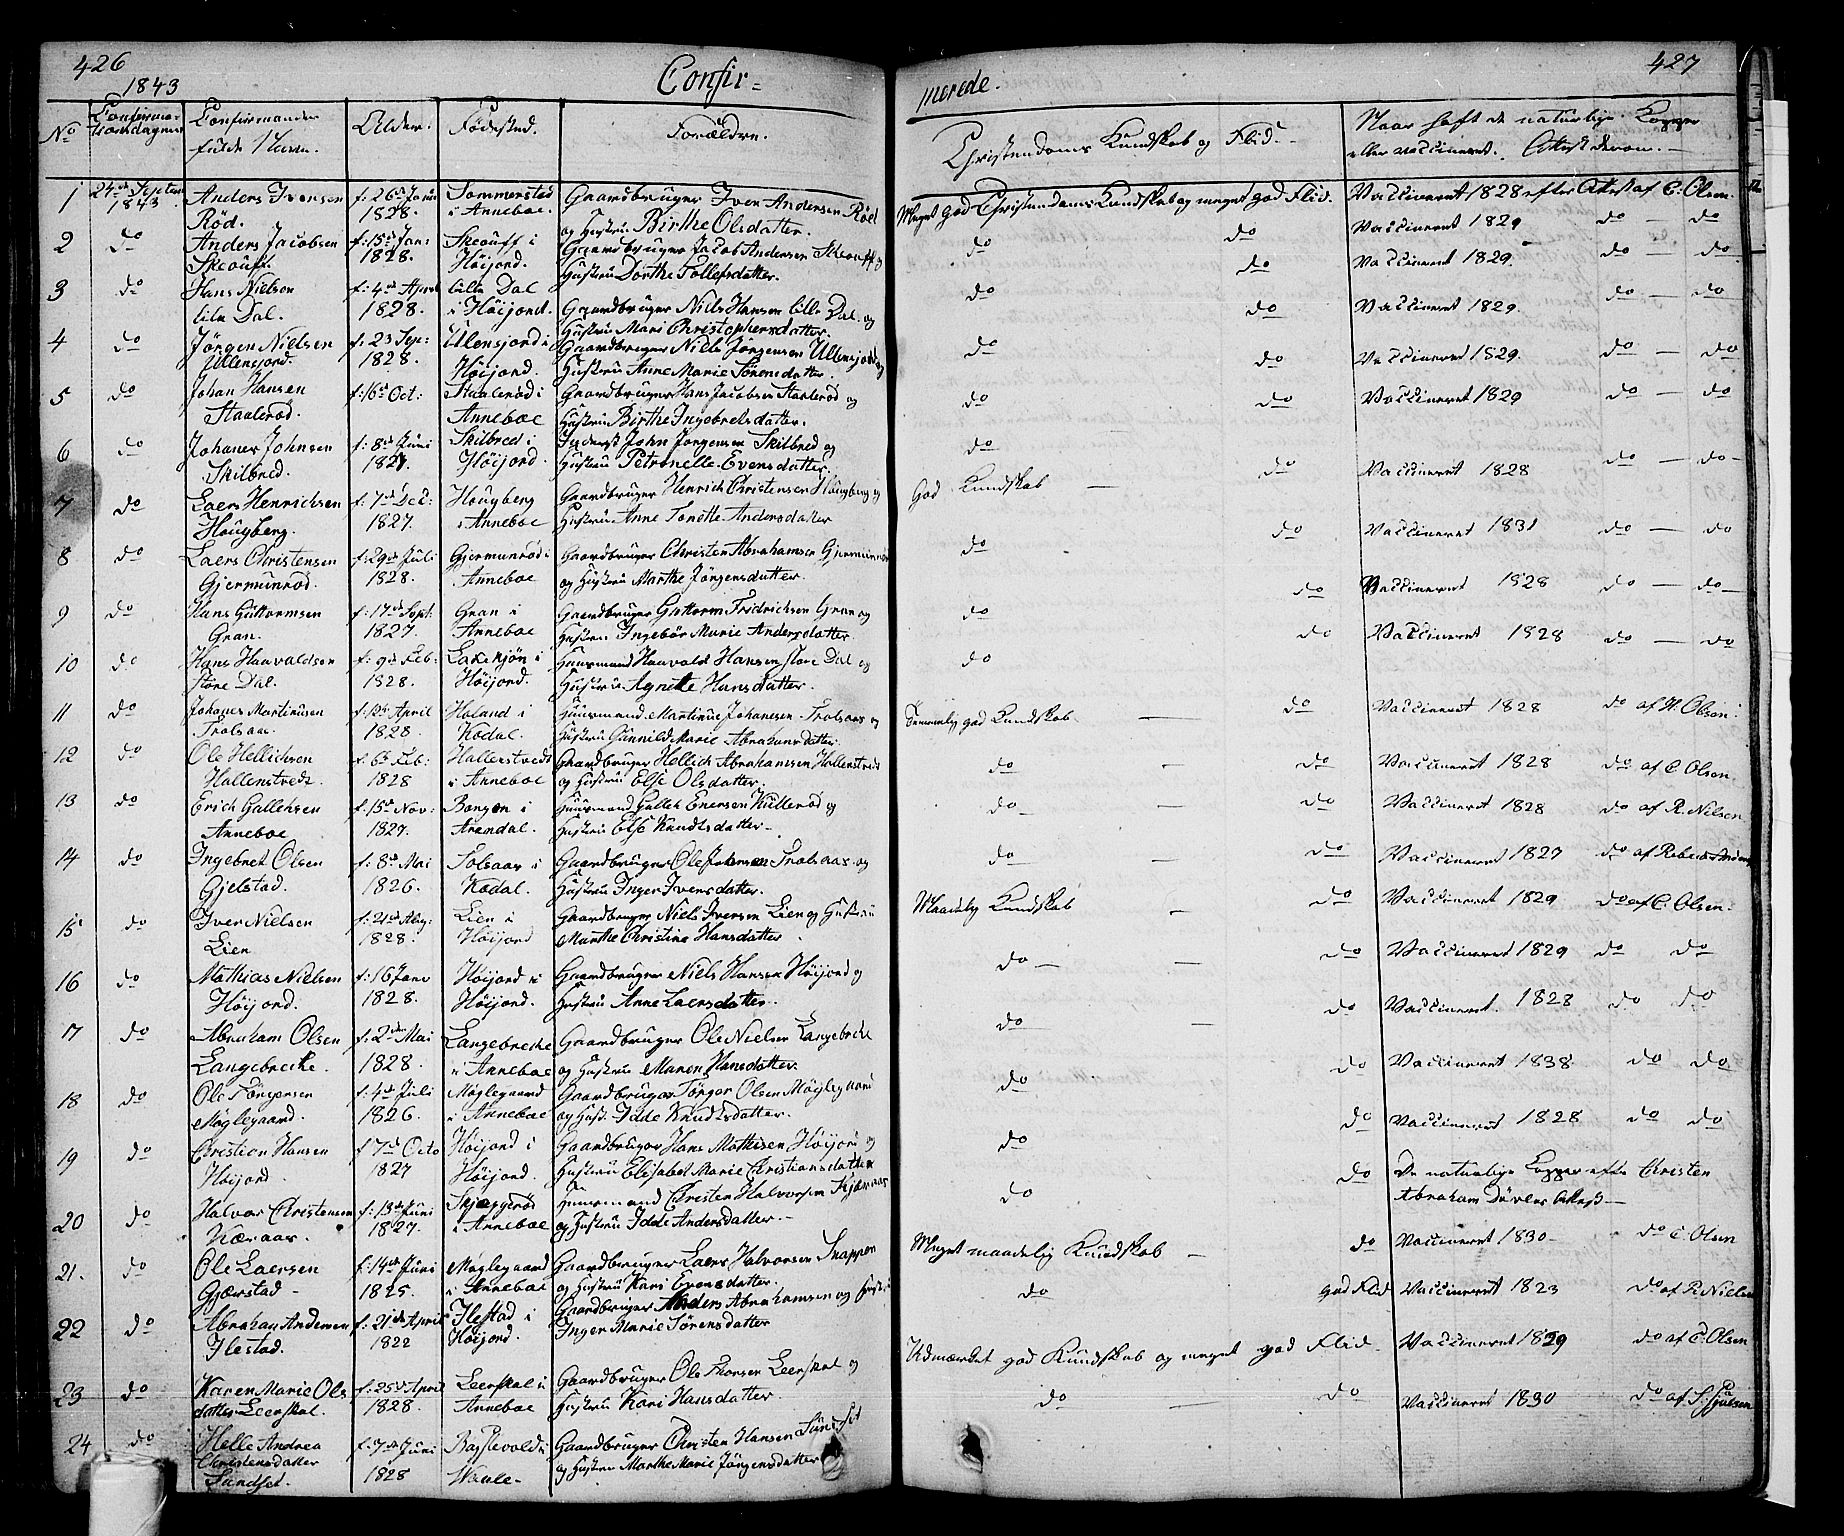 426
1843
Confir=
No
Confirma-
tionsdagen
Confirmander
fulde Navn.
Alder.
Fødested.
Forældre.
1 24de Septem 1843. Anders Iversen f: 26de Juni Sommerstad Gaardbruger Iver Andersen Rød
Rød. 1828. i Anneboe. og Hustru Birthe Olsdatter.
2 do Anders Jacobsen f: 15de Jan: Skeouff i Gaardbruger Jacob Andersen Skeouff og
Skeouff. 1828. Høijord. Hustru Dorthe Tollefsdatter.
3 do Hans Nielsen f: 4de April lille Dal Gaardbruger Niels Hansen lille Dal og
lille Dal. 1828. i Høijord. Hustru Mari Christophersdatter.
4 do Jörgen Nielsen f: 23 Sep: Ullensjord i Gaardbruger Niels Jörgensen Ullensjord og
Ullensjord. 1828. Høijord. Hustru Anne Marie Sörensdatter.
5 do Johan Hansen f: 16de Oct: Staalerød i Gaardbruger Hans Jacobsen Staalerød og
Staalerød. Anneboe. Hustru Birthe Ingebretsdatter.
6 do Johanes Johnsen f: 8de Juni Skilbred i Inderst John Jörgensen Skilbred og
Skilbred. 1827. Høijord. Hustru Petronelle Evensdatter.
7 do Laers Henrichsen f: 7de Dec: Hougberg Gaardbruger Henrich Christensen Hougberg og
Hougberg. 1827. i Anneboe Hustru Anne Torette Andersdatter
8 do Laers Christensen f: 29de Juli Gjermunrød i Gaardbruger Christen Abrahamsen Gjermunrød
Gjermunrød. 1828. Anneboe og Hustru Marthe Jörgensdatter.
9 do Hans Guttormsen f: 17de Sept: Gran i Gaardbruger Guttorm Fridrichsen Gran og
Gran. 1827. Anneboe Hustru Ingebör Marie Andersdatter.
10 do Hans Haavaldsen f: 9de Feb: Laxekjøn i Huusmand Haavald Hansen store Dal og
store Dal. 1828. Høijord. Hustru Agnette Hansdatter.
11 do Johanes Martinusen f: 12te April Holand i Huusmand Martinus Johanesen Trolsaas og
Trolsaas. 1828. Kodal. Hustru Gunnild Marie Abrahamsdatter.
12 do Ole Hellichsen f: 6te Feb: Hallenstvedt Gaardbruger Hellich Abrahamsen Hallenstvedt
Hallenstvedt. 1828 i Anneboe og Hustru Else Olsdatter.
13 do Erich Gullichsen f: 15de Nov: Borgen i Huusmand Gullich Enersen Kullerød og
Anneboe 1827. Arendal. Hustru Else Knudtsdatter.
14 do Ingebret Olsen f: 8de Mai Tolsaar i Gaardbruger Ole Johnsen Trolsaas og
Gjelstad. 1826. Kodal. Hustru Inger Iversdatter.
15 do Iver Nielsen f: 21de Aug: Lien i Gaardbruger Niels Iversen Lien og Hustru
Lien 1828. Høijord Marthe Christina Hansdatter
16 do Mathias Nielsen f: 16 Janu Høijord i Gaardbruger Niels Hansen Høijord og
Høijord. 1828. Høijord. Hustru Anne Laersdatter.
17 do Abraham Olsen f: 2den Mai Langebrecke Gaardbruger Ole Nielsen Langebrecke
Langebrecke. 1828. i Anneboe og Hustru Maren Hansdatter.
18 do Ole Törgersen f: 4de Juli Møglegaard Gaardbruger Törger Olsen Møglegaard
Møglegaard. 1826. i Anneboe og Hust: Idde Knudtsdatter.
19 do Christian Hansen f 7de Octo Høijord i Gaardbruger Hans Mathisen Høijord og
Høijord. 1827 Høijord. Hustru Elisabet Marie Christiansdatter
20 do Halvor Christensen f: 13de Juni Skjeggerød Huusmand Christen Halvorsen Kjæraas
Kæraas. 1827. i Anneboe og Hustru Idde Andersdatter.
21. do Ole Laersen f: 14de Juni Møglegaard Gaardbruger Laers Halvorsen Snappen
Gjærstad 1825. i Anneboe og Hustru Kari Evensdatter.
22 do Abraham Andersen f: 21de April Ilestad i Gaardbruger Anders Abrahamsen og Hustru
Ilestad. 1822 Høijord. Inger Marie Sörensdatter
23 do Karen Marie Ols f: 25de April Leerskal i Gaardbruger Ole Thorsen Leerskal og
datter Leerskal. 1828. Anneboe Hustru Kari Hansdatter
24 do Helle Andrea f: 7de Juni Gaardbruger Christen Hansen Sundset
Christensdatter 1828 og Hustru Marthe Marie Jörgensdatter
Sundset.
427
merede.
Christendoms Kundskab og Flid.
Naar haft de naturlige Kopper
eller vaccineret. Attest derom.
Meget god Christendoms Kundskab og meget god Flid. Vaccineret 1828 efter Attest af C. Olsen.
do do Vaccineret 1829 do — do
do Vaccineret 1829. do — do
do do Vaccineret 1829. do — do
do do Vaccineret 1829. do — do
do do Vaccineret 1829 do — do
do do Vaccineret 1828 do — do
God Kundskab — do Vaccineret 1831 do — do
do do Vaccineret 1828 do — do
do do Vaccineret 1828 do — do
do do Vaccineret 1828 do af H. Olsen.
Temmelig god Kundskab — do Vaccineret 1828 do af C. Olsen.
do — do Vaccineret 1828 do af R. Nielsen
do — do Vaccineret 1827 do af
do — do Vaccineret 1829 do af C. Olsen.
Maadelig Kundskab — do Vaccineret 1829 do do
do — do Vaccineret 1828 do do
do — do Vaccineret 1838 do do
do do Vaccineret 1828 do do
do do De naturlige Kopper efter Christen
Abraham Attest
do do Vaccineret 1830 do C. Olsen
Meget maadelig Kundskab — god Flid Vaccineret 1823 do af R. Nielsen
do
Udmærket god Kundskab og meget god Flid. Vaccineret 1829 do af C. Olsen
do — do Vaccineret 1830 do af